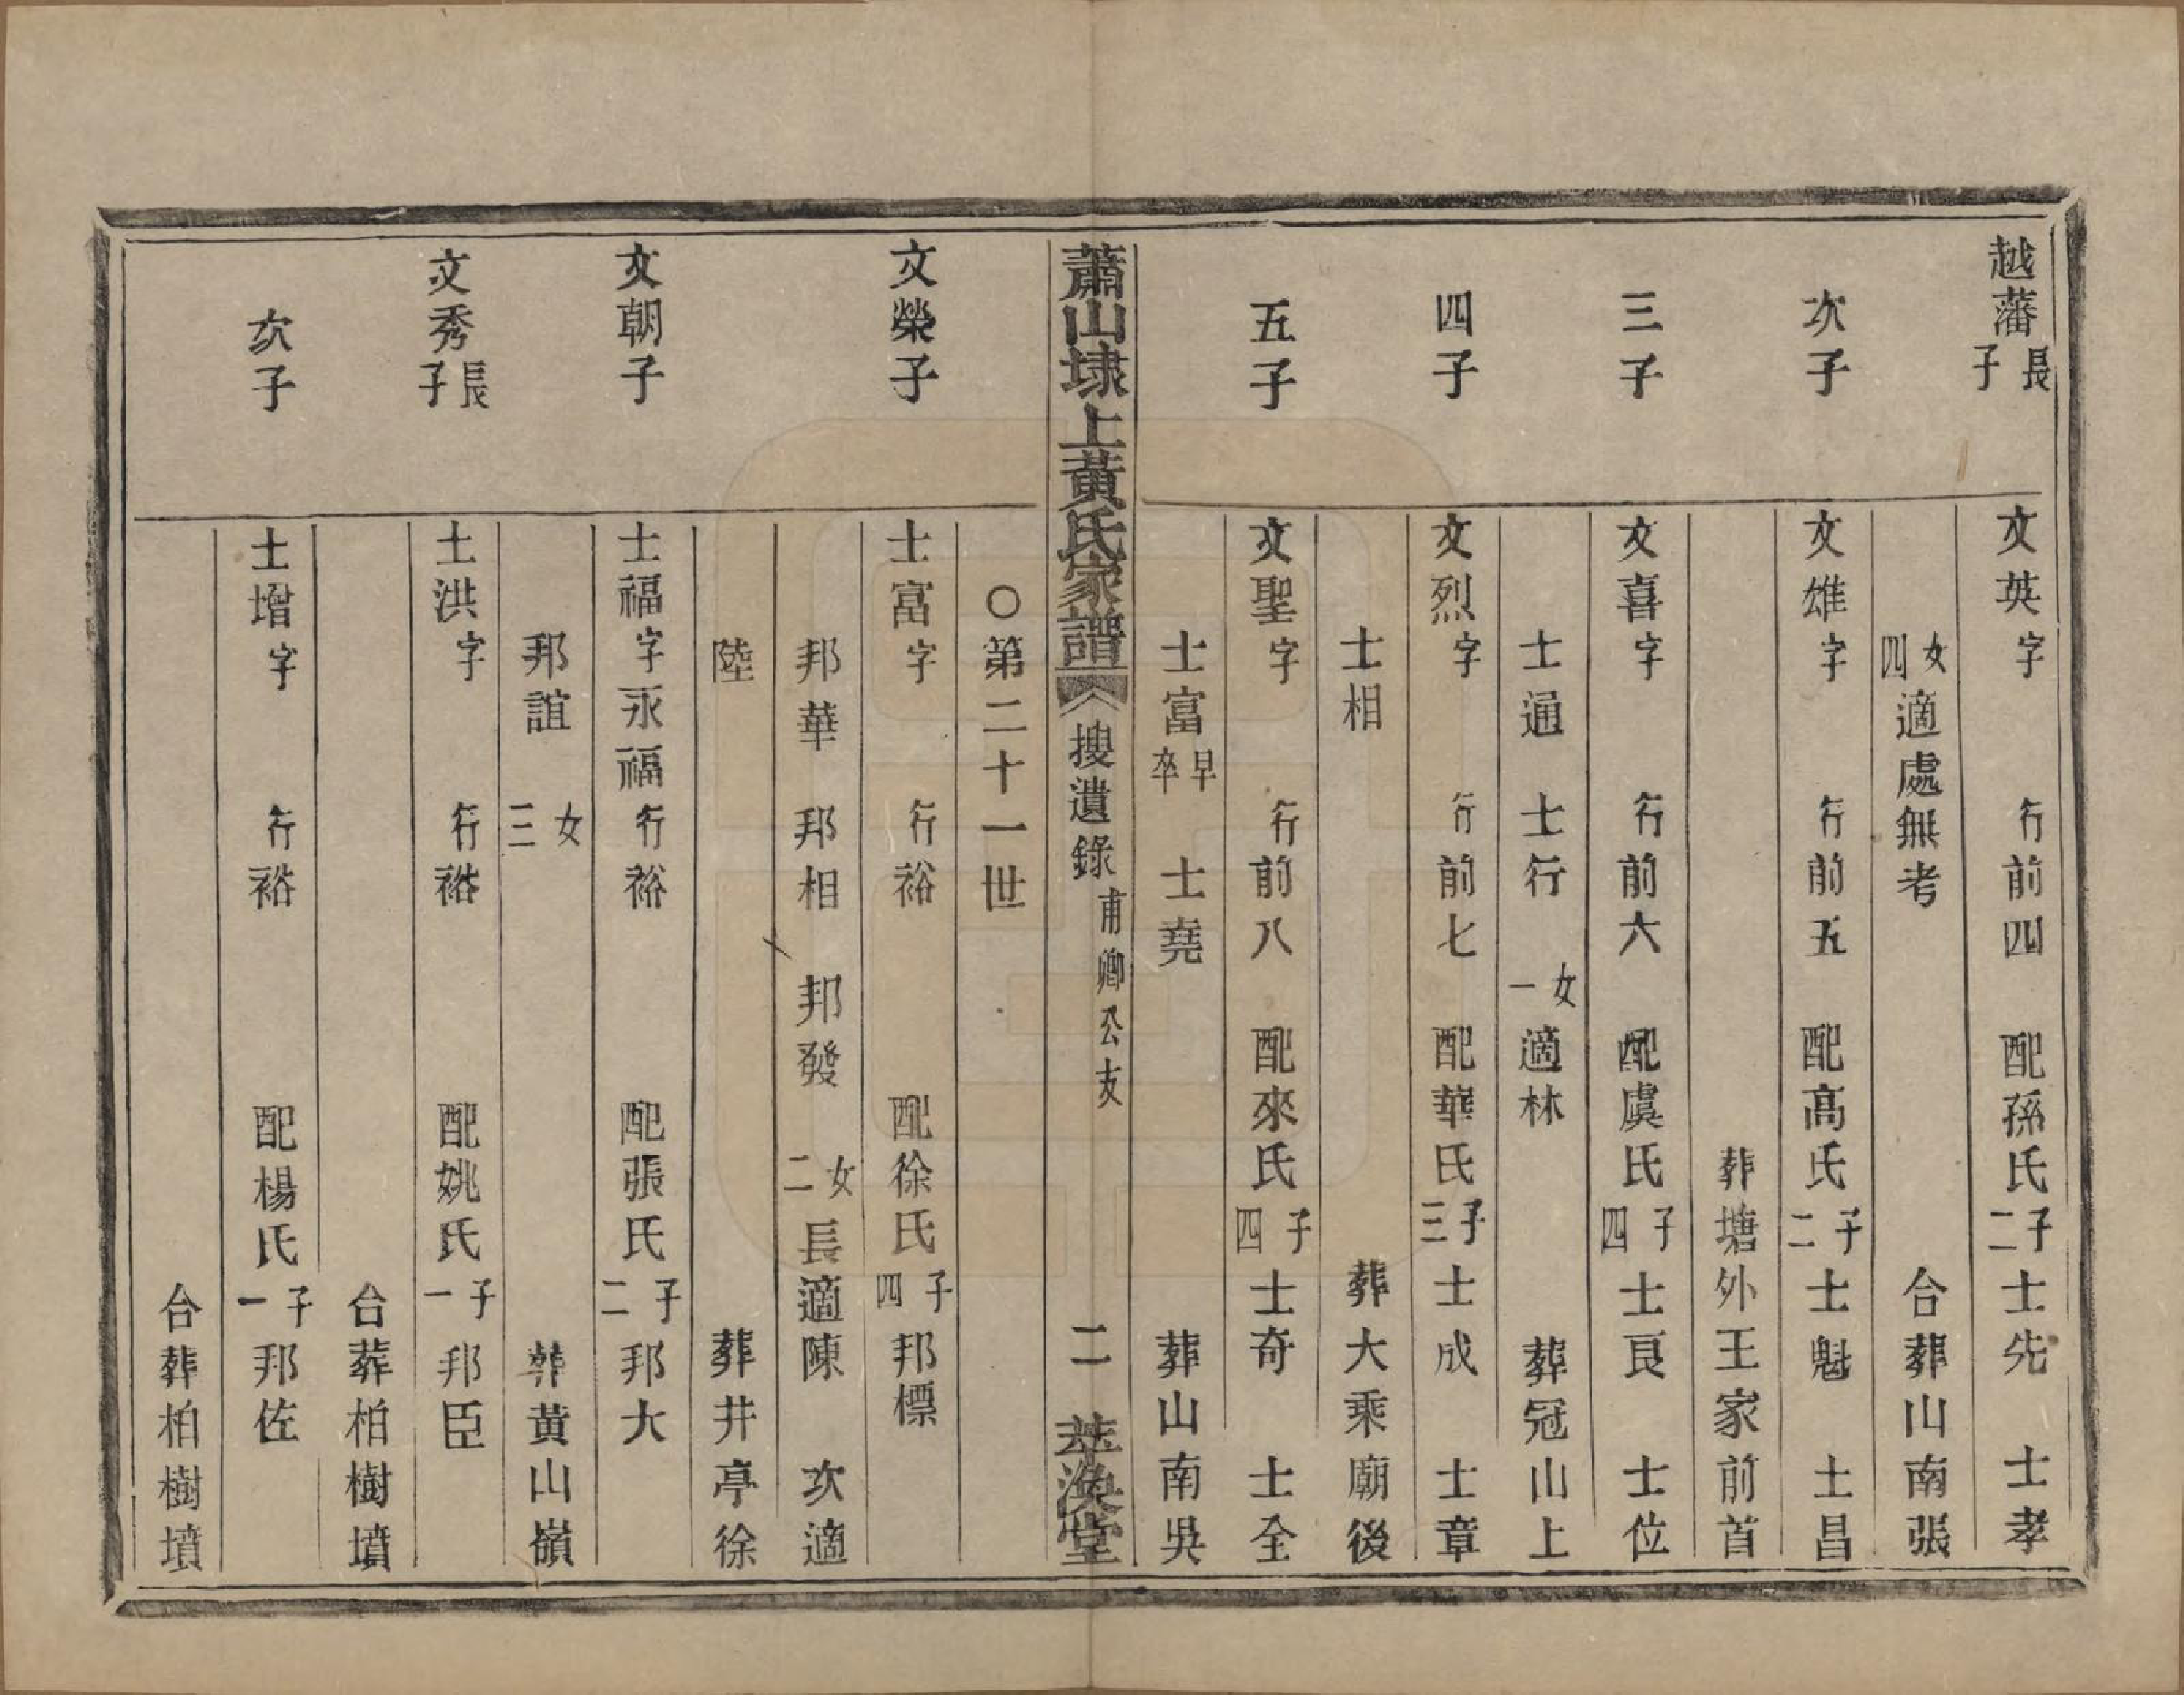 越藩長子
文英字　行前四　配孫氏子二士先　士孝
女四適處無考　合葬山南張
次子
文雄字　行前五　配高氏子二士魁　士昌
葬塘外王家前首
三子
文喜字　行前六　配虞氏子四士良　士位
士通　士行　女一適林　葬冠山上
四子
文烈字　行前七　配華氏子三士成　士章
士相　葬大乘廟後
五子
文聖字　行前八　配來氏子四士奇　士全
士富早卒　士堯　葬山南吳
蕭山埭上黃氏家譜　搜遺錄　甫卿公支　二　萃渙堂
○第二十一世
文榮子
士富字　行裕　配徐氏子四邦標
邦華　邦相　邦發　女二長適陳　次適
陸　葬井亭徐
文朝子
士福字永福行裕　配張氏子二邦大
邦誼　女三　葬黃山嶺
文秀長子
士洪字　行裕　配姚氏子一邦臣
合葬柏樹墳
次子
士增字　行裕　配楊氏子一邦佐
合葬柏樹墳